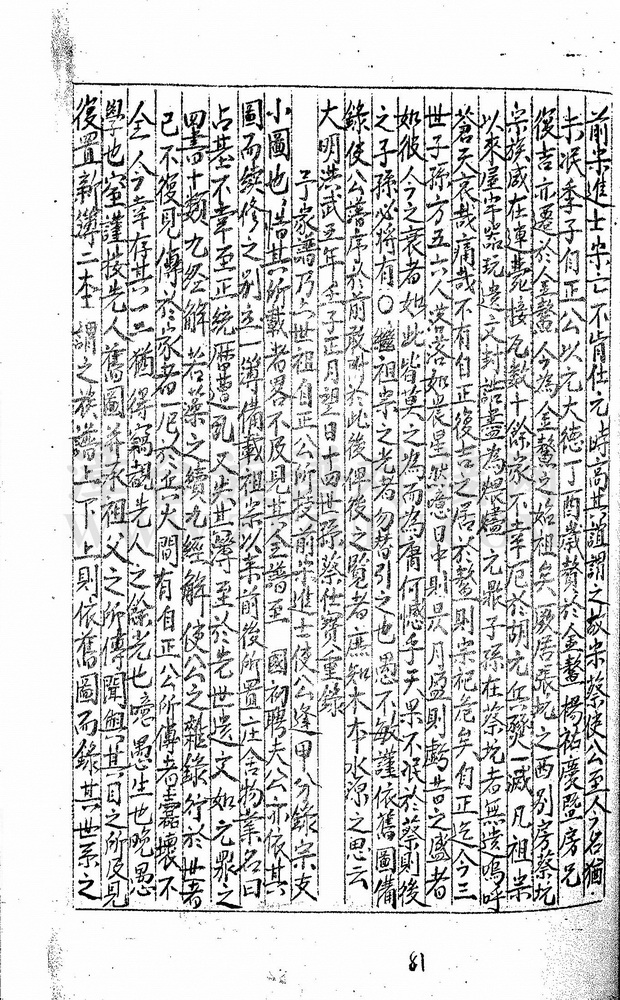 前宋進士宋亡不肯仕元時高其誼謂之故宋蔡使公至今名猶
未泯季子自正公以元大德丁酉歲贅於金鰲楊祐是暨房兄
復吉亦遷於金鰲今為金鰲之始祖矣厥居張坑之西別房蔡坑
宗族咸在連甍接瓦數十餘家不幸厄於胡元兵燹一滅凡祖宗
以來屋宇器玩遺文封誥盡為煨燼元鼎子孫在蔡坑者無遺嗚呼
蒼天哀哉痛哉不有自正復吉之居於鰲則宗祀危矣自正迄今三
世子孫方五六人落落如晨星然噫日中則昃月盈則虧昔之盛者
如彼今之衰者如此皆莫之為而為庸何憾乎天果不泯於蔡則後
之子孫必將有〇繼祖宗之光者勿替引之也愚不敏謹依舊圖備
錄使公譜序於前敢於此後俾後之覽者庶知木本水源之思云
大明洪武五年壬子正月望日十四世孫蔡仕寶重錄
予家譜乃六世祖自正公所授前宋進士使公逢甲分錄宗支
小圖也惜其所載者畧不及見其全譜至國初聘夫公亦依其
圖而續修之別立一簿備載祖宗以來前後所置庄舍物業名曰
占基不幸至正統曆遭乱又失其簿至於先世遺文如元鼎之
四書十類九經解若藻之續九經解使公之雜錄行於世者
已不復見傳於家者一厄於兵火間有自正公所傳者蠹壞不
全今幸存其一二猶得竊覩先人之餘光也噫愚生也晚愚
學也窒謹按先人舊圖并承祖父之所傳聞與其目之所及見
復置新簿二本謂之族譜上下上則依舊圖而錄其世系之
81